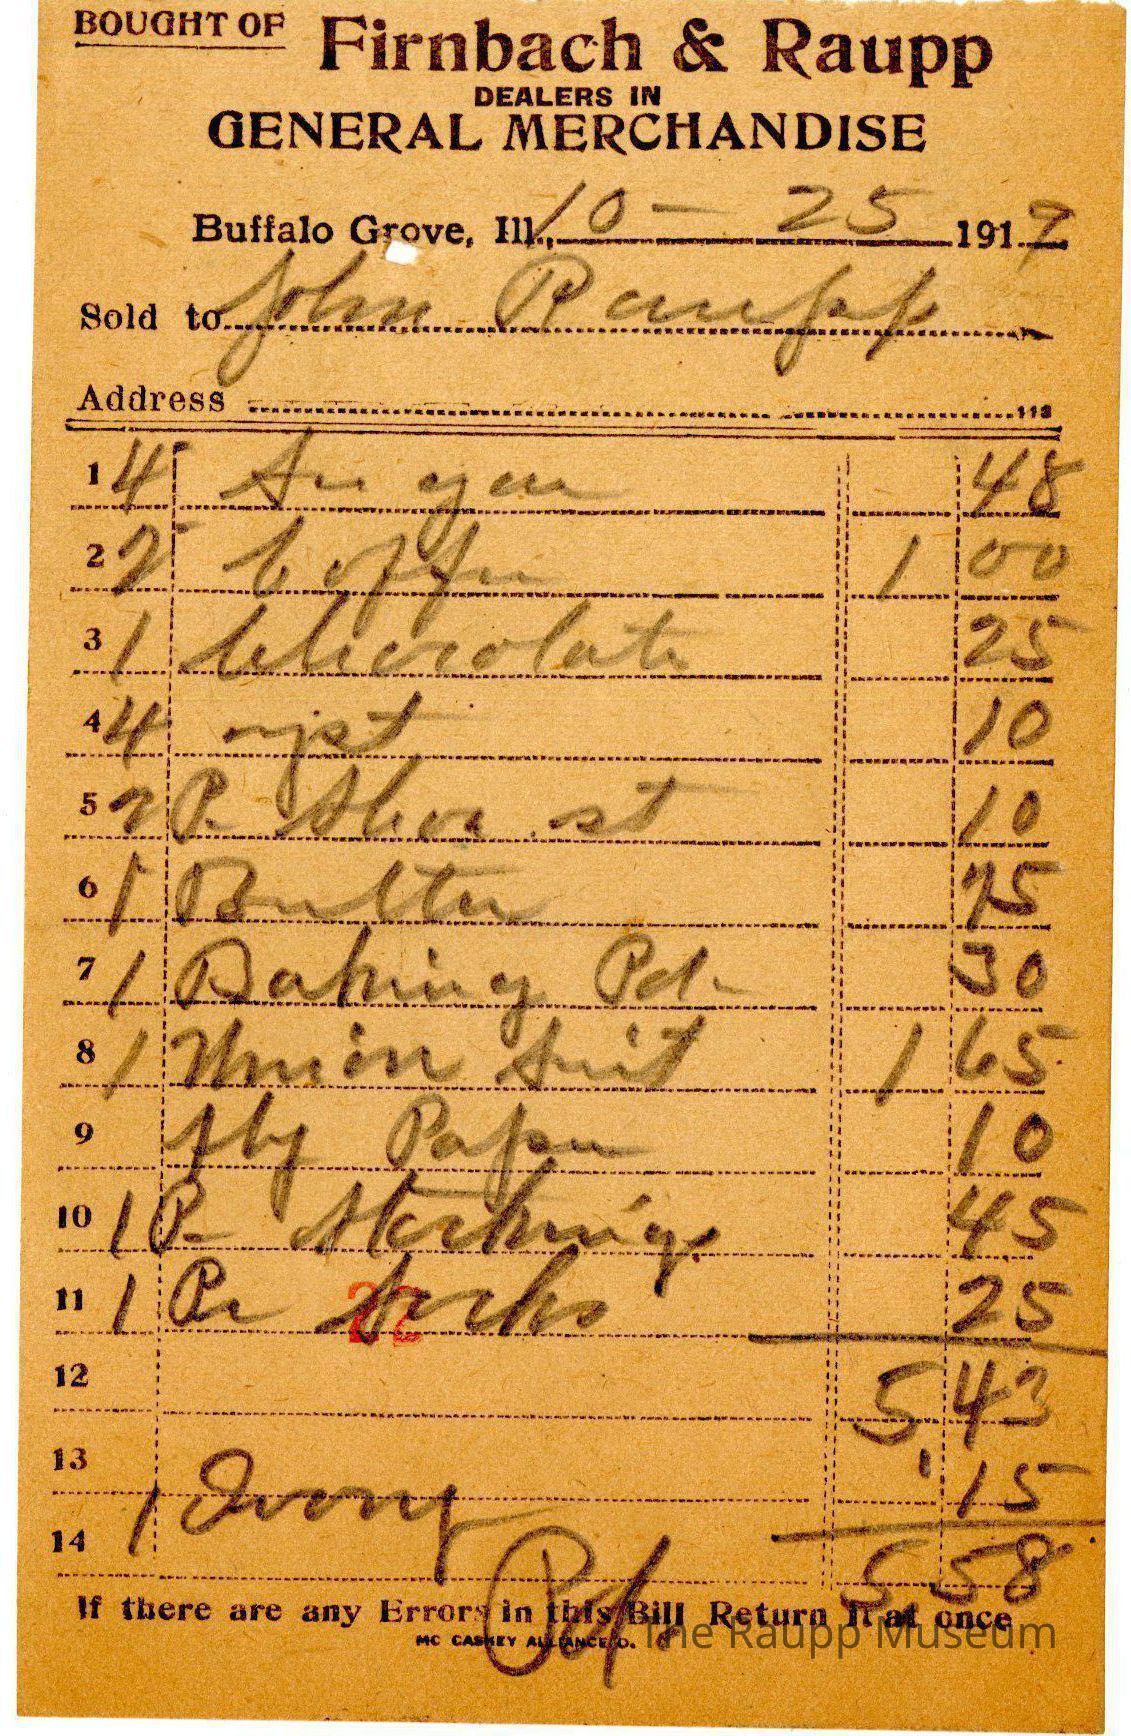 BOUGHT OF Firnbach & Raupp
DEALERS IN
GENERAL MERCHANDISE
Buffalo Grove, Ill., 10 - 25 1917
Sold to John Raupp
Address
113
1 4 48
2 2 Coffee 1 00
3 1 Chocolate 25
4 4 yst 10
5 2 P. Shoe st 10
6 1 Butter 45
7 1 Baking Pd. 30
8 1 Union Suit 1 65
9 fly Paper 10
10 1 Pr Stockings 45
11 1 Pr Socks 25
22
12 5,43
13 15
14 1 Ivory 5 58
Pd.
If there are any Errors in this Bill Return it at once
MC CASKEY ALLIANCE O.
The Raupp Museum